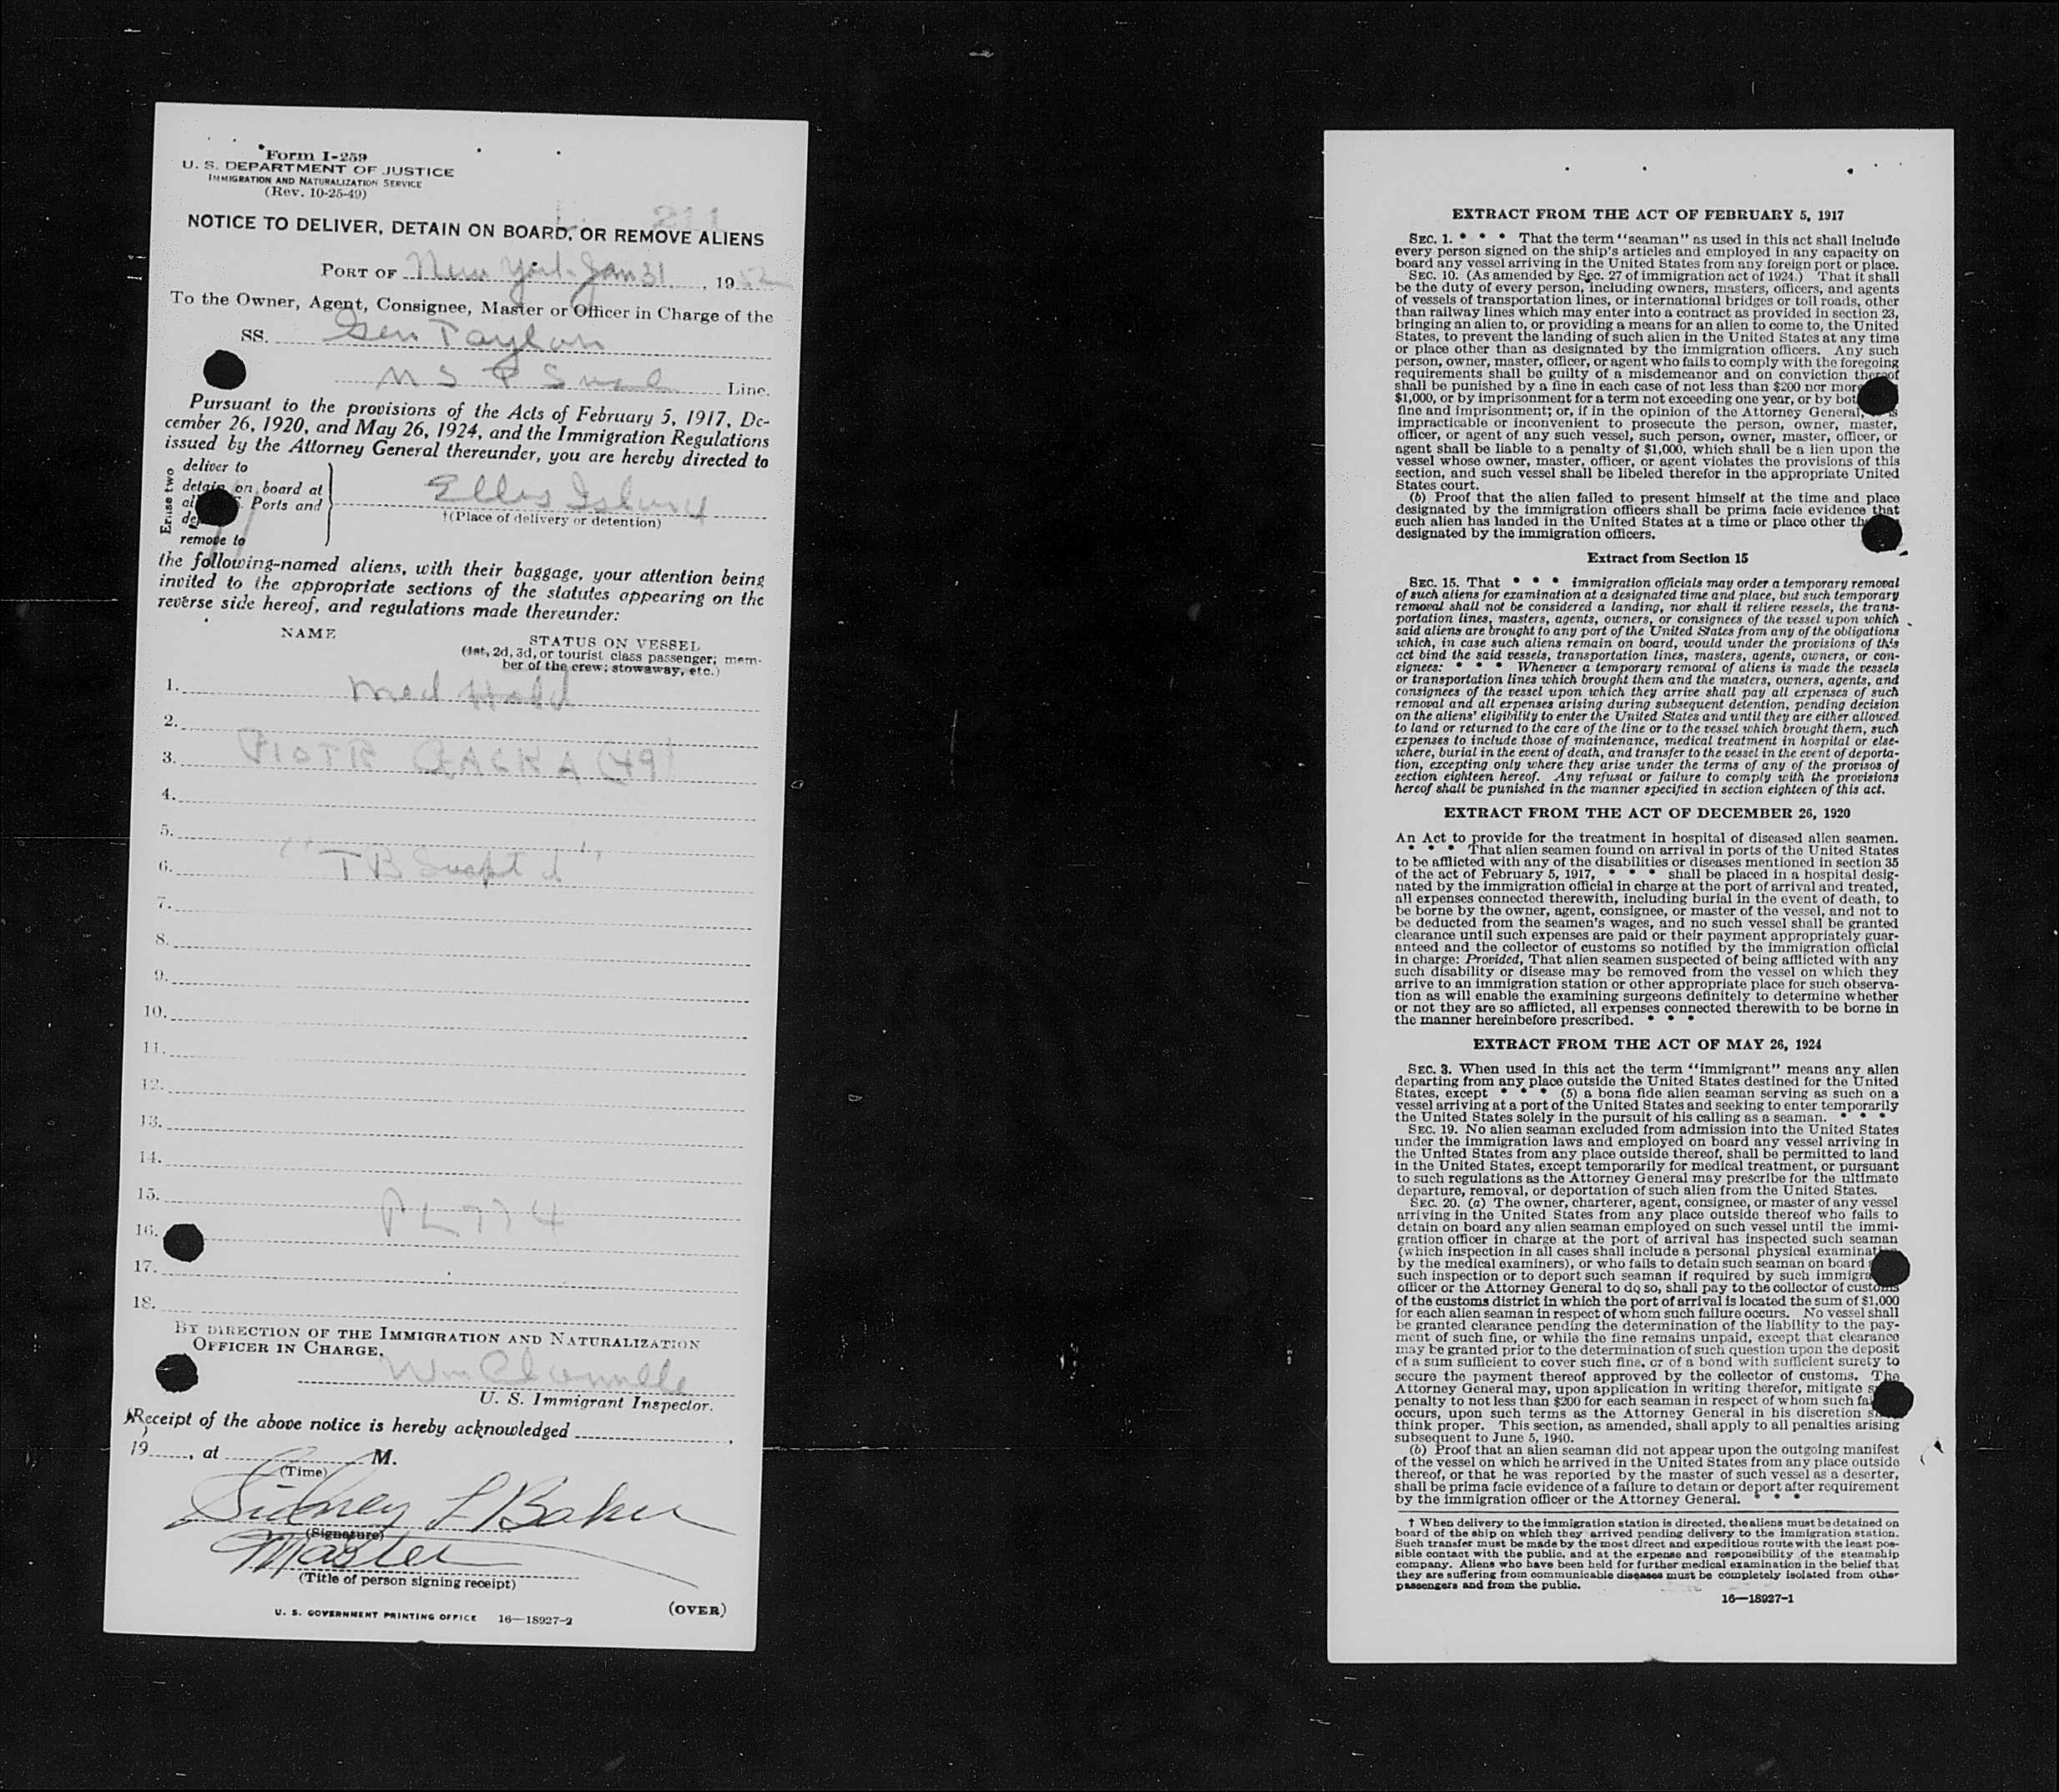 Form I-259
U. S. DEPARTMENT OF JUSTICE
IMMIGRATION AND NATURALIZATION SERVICE
(Rev. 10-25-49)
211
NOTICE TO DELIVER, DETAIN ON BOARD, OR REMOVE ALIENS
PORT OF New York Jan 31, 1952
To the Owner, Agent, Consignee, Master or Officer in Charge of the
SS. Gen Taylor
Line.
Pursuant to the provisions of the Acts of February 5, 1917, De-
cember 26, 1920, and May 26, 1924, and the Immigration Regulations
issued by the Attorney General thereunder, you are hereby directed to
Erase two
deliver to
detain on board at
Ports and
remove to
Ellis Island
†(Place of delivery or detention)
the following-named aliens, with their baggage, your attention being
invited to the appropriate sections of the statutes appearing on the
reverse side hereof, and regulations made thereunder:
NAME
STATUS ON VESSEL
(1st, 2d, 3d, or tourist class passenger; mem-
ber of the crew; stowaway, etc.)
1. Med Hold
2.
3. PIOTR GACKA (49)
4.
5.
6. "TB Suspt d"
7.
8.
9.
10.
11.
12.
13.
14.
15. PL 774
16.
17.
18.
BY DIRECTION OF THE IMMIGRATION AND NATURALIZATION
OFFICER IN CHARGE.
U. S. Immigrant Inspector.
Receipt of the above notice is hereby acknowledged ,
19 , at M.
(Time)
Sidney L Baker
(Signature)
Master
(Title of person signing receipt)
U. S. GOVERNMENT PRINTING OFFICE 16—18927-2
(OVER)
EXTRACT FROM THE ACT OF FEBRUARY 5, 1917
SEC. 1. * * * That the term "seaman" as used in this act shall include
every person signed on the ship's articles and employed in any capacity on
board any vessel arriving in the United States from any foreign port or place.
SEC. 10. (As amended by Sec. 27 of immigration act of 1924.) That it shall
be the duty of every person, including owners, masters, officers, and agents
of vessels of transportation lines, or international bridges or toll roads, other
than railway lines which may enter into a contract as provided in section 23,
bringing an alien to, or providing a means for an alien to come to, the United
States, to prevent the landing of such alien in the United States at any time
or place other than as designated by the immigration officers. Any such
person, owner, master, officer, or agent who fails to comply with the foregoing
requirements shall be guilty of a misdemeanor and on conviction thereof
shall be punished by a fine in each case of not less than $200 nor more
$1,000, or by imprisonment for a term not exceeding one year, or by both
fine and imprisonment; or, if in the opinion of the Attorney General, is
impracticable or inconvenient to prosecute the person, owner, master,
officer, or agent of any such vessel, such person, owner, master, officer, or
agent shall be liable to a penalty of $1,000, which shall be a lien upon the
vessel whose owner, master, officer, or agent violates the provisions of this
section, and such vessel shall be libeled therefor in the appropriate United
States court.
(b) Proof that the alien failed to present himself at the time and place
designated by the immigration officers shall be prima facie evidence that
such alien has landed in the United States at a time or place other
designated by the immigration officers.
Extract from Section 15
SEC. 15. That * * * immigration officials may order a temporary removal
of such aliens for examination at a designated time and place, but such temporary
removal shall not be considered a landing, nor shall it relieve vessels, the trans-
portation lines, masters, agents, owners, or consignees of the vessel upon which
said aliens are brought to any port of the United States from any of the obligations
which, in case such aliens remain on board, would under the provisions of this
act bind the said vessels, transportation lines, masters, agents, owners, or con-
signees: * * * Whenever a temporary removal of aliens is made the vessels
or transportation lines which brought them and the masters, owners, agents, and
consignees of the vessel upon which they arrive shall pay all expenses of such
removal and all expenses arising during subsequent detention, pending decision
on the aliens' eligibility to enter the United States and until they are either allowed
to land or returned to the care of the line or to the vessel which brought them, such
expenses to include those of maintenance, medical treatment in hospital or else-
where, burial in the event of death, and transfer to the vessel in the event of deporta-
tion, excepting only where they arise under the terms of any of the provisos of
section eighteen hereof. Any refusal or failure to comply with the provisions
hereof shall be punished in the manner specified in section eighteen of this act.
EXTRACT FROM THE ACT OF DECEMBER 26, 1920
An Act to provide for the treatment in hospital of diseased alien seamen.
* * * That alien seamen found on arrival in ports of the United States
to be afflicted with any of the disabilities or diseases mentioned in section 35
of the act of February 5, 1917, * * * shall be placed in a hospital desig-
nated by the immigration official in charge at the port of arrival and treated,
all expenses connected therewith, including burial in the event of death, to
be borne by the owner, agent, consignee, or master of the vessel, and not to
be deducted from the seamen's wages, and no such vessel shall be granted
clearance until such expenses are paid or their payment appropriately guar-
anteed and the collector of customs so notified by the immigration official
in charge: Provided, That alien seamen suspected of being afflicted with any
such disability or disease may be removed from the vessel on which they
arrive to an immigration station or other appropriate place for such observa-
tion as will enable the examining surgeons definitely to determine whether
or not they are so afflicted, all expenses connected therewith to be borne in
the manner hereinbefore prescribed. * * *
EXTRACT FROM THE ACT OF MAY 26, 1924
SEC. 3. When used in this act the term "immigrant" means any alien
departing from any place outside the United States destined for the United
States, except * * * (5) a bona fide alien seaman serving as such on a
vessel arriving at a port of the United States and seeking to enter temporarily
the United States solely in the pursuit of his calling as a seaman. * * *
SEC. 19. No alien seaman excluded from admission into the United States
under the immigration laws and employed on board any vessel arriving in
the United States from any place outside thereof, shall be permitted to land
in the United States, except temporarily for medical treatment, or pursuant
to such regulations as the Attorney General may prescribe for the ultimate
departure, removal, or deportation of such alien from the United States.
SEC. 20. (a) The owner, charterer, agent, consignee, or master of any vessel
arriving in the United States from any place outside thereof who fails to
detain on board any alien seaman employed on such vessel until the immi-
gration officer in charge at the port of arrival has inspected such seaman
(which inspection in all cases shall include a personal physical examination
by the medical examiners), or who fails to detain such seaman on board
such inspection or to deport such seaman if required by such immigra
officer or the Attorney General to do so, shall pay to the collector of customs
of the customs district in which the port of arrival is located the sum of $1,000
for each alien seaman in respect of whom such failure occurs. No vessel shall
be granted clearance pending the determination of the liability to the pay-
ment of such fine, or while the fine remains unpaid, except that clearance
may be granted prior to the determination of such question upon the deposit
of a sum sufficient to cover such fine, or of a bond with sufficient surety to
secure the payment thereof approved by the collector of customs. The
Attorney General may, upon application in writing therefor, mitigate
penalty to not less than $200 for each seaman in respect of whom such
occurs, upon such terms as the Attorney General in his discretion
think proper. This section, as amended, shall apply to all penalties arising
subsequent to June 5, 1940.
(b) Proof that an alien seaman did not appear upon the outgoing manifest
of the vessel on which he arrived in the United States from any place outside
thereof, or that he was reported by the master of such vessel as a deserter,
shall be prima facie evidence of a failure to detain or deport after requirement
by the immigration officer or the Attorney General. * * *
† When delivery to the immigration station is directed, the aliens must be detained on
board of the ship on which they arrived pending delivery to the immigration station.
Such transfer must be made by the most direct and expeditious route with the least pos-
sible contact with the public, and at the expense and responsibility of the steamship
company. Aliens who have been held for further medical examination in the belief that
they are suffering from communicable diseases must be completely isolated from other
passengers and from the public.
16—18927-1